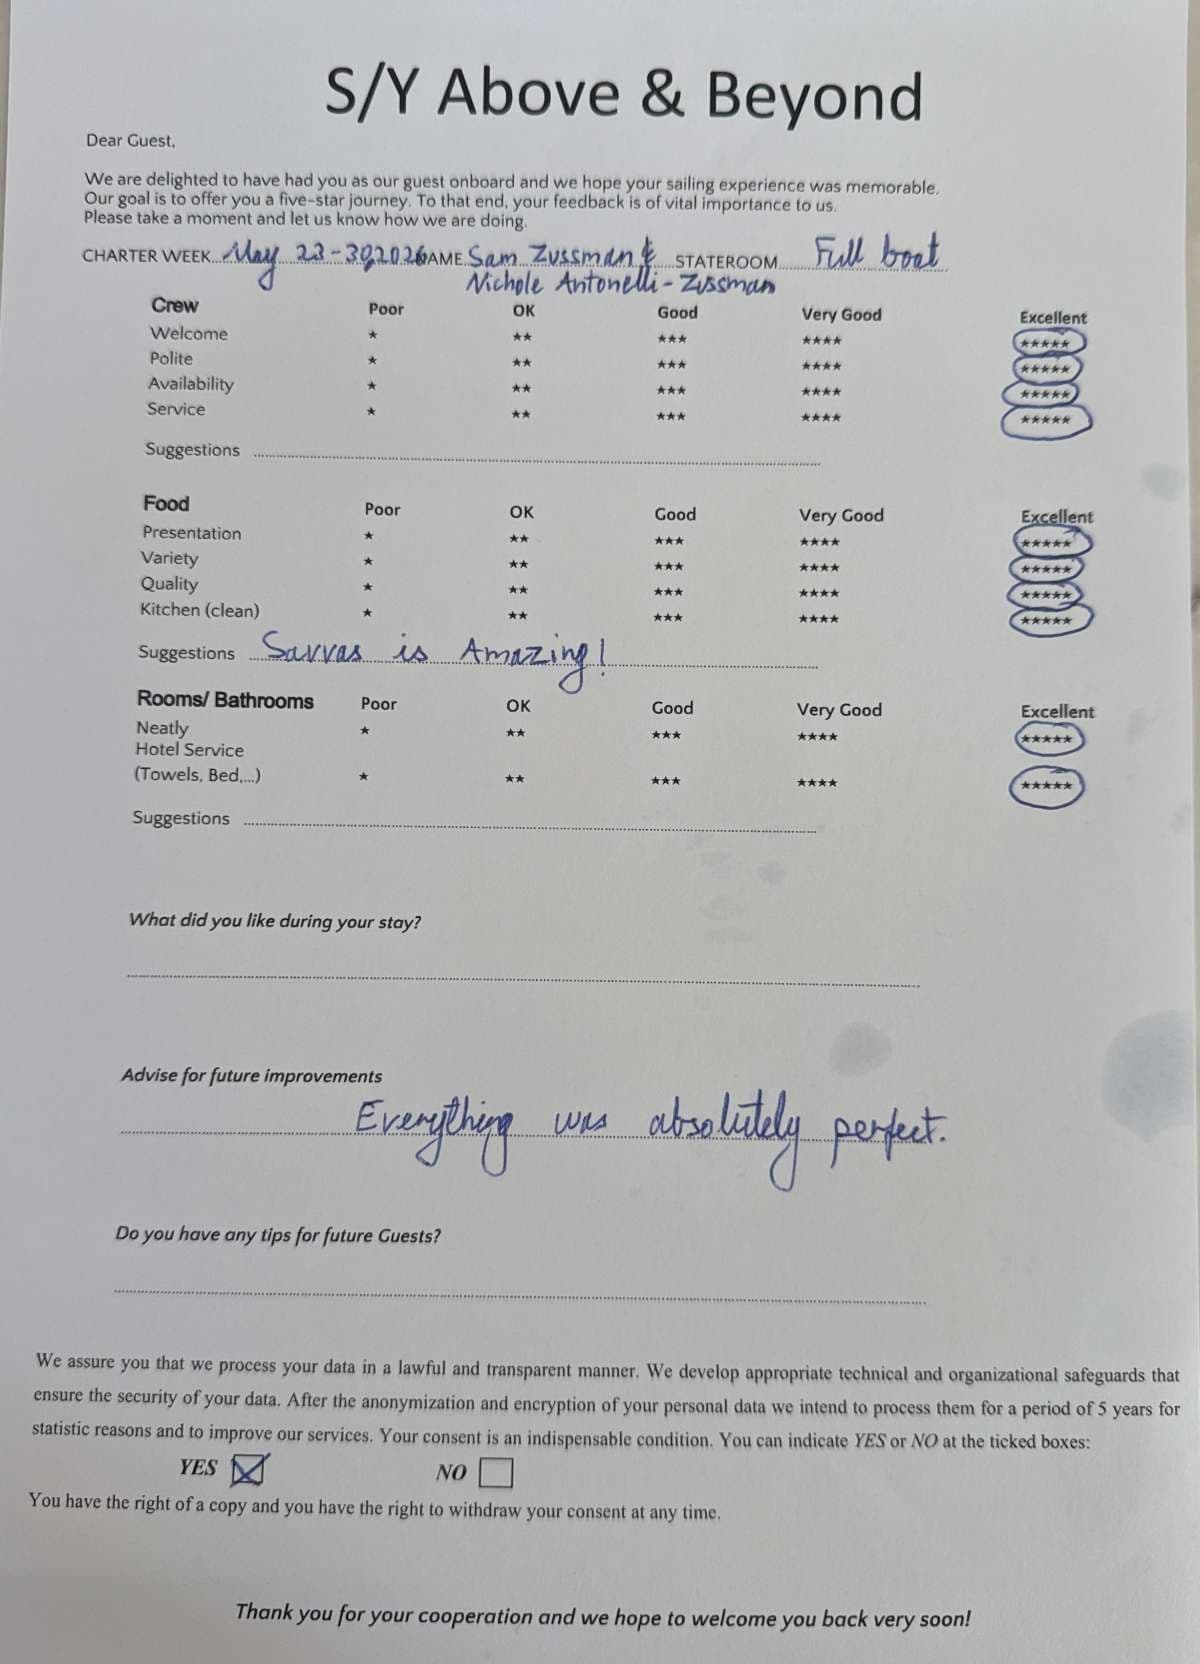 S/Y Above & Beyond
Dear Guest,
We are delighted to have had you as our guest onboard and we hope your sailing experience was memorable.
Our goal is to offer you a five-star journey. To that end, your feedback is of vital importance to us.
Please take a moment and let us know how we are doing.
CHARTER WEEK May 23-30, 2026 NAME Sam Zussman & STATEROOM Full boat
Nichole Antonelli-Zussman
Crew Poor OK Good Very Good Excellent
Welcome ★ ★★ ★★★ ★★★★ ★★★★★
Polite ★ ★★ ★★★ ★★★★ ★★★★★
Availability ★ ★★ ★★★ ★★★★ ★★★★★
Service ★ ★★ ★★★ ★★★★ ★★★★★
Suggestions
Food Poor OK Good Very Good Excellent
Presentation ★ ★★ ★★★ ★★★★ ★★★★★
Variety ★ ★★ ★★★ ★★★★ ★★★★★
Quality ★ ★★ ★★★ ★★★★ ★★★★★
Kitchen (clean) ★ ★★ ★★★ ★★★★ ★★★★★
Suggestions Savvas is Amazing!
Rooms/ Bathrooms Poor OK Good Very Good Excellent
Neatly ★ ★★ ★★★ ★★★★ ★★★★★
Hotel Service
(Towels, Bed,...) ★ ★★ ★★★ ★★★★ ★★★★★
Suggestions
What did you like during your stay?
Advise for future improvements
Everything was absolutely perfect.
Do you have any tips for future Guests?
We assure you that we process your data in a lawful and transparent manner. We develop appropriate technical and organizational safeguards that
ensure the security of your data. After the anonymization and encryption of your personal data we intend to process them for a period of 5 years for
statistic reasons and to improve our services. Your consent is an indispensable condition. You can indicate YES or NO at the ticked boxes:
YES NO
You have the right of a copy and you have the right to withdraw your consent at any time.
Thank you for your cooperation and we hope to welcome you back very soon!